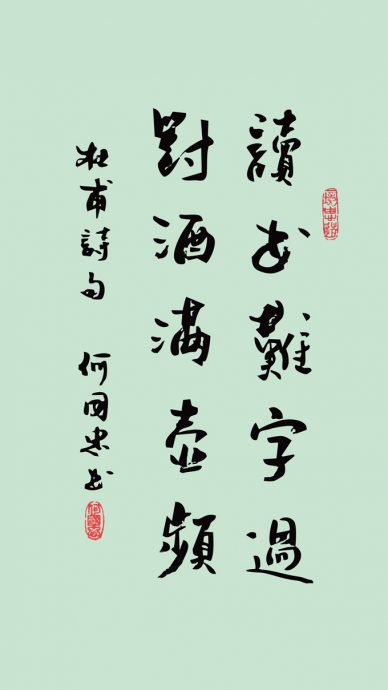 讀書難字過
對酒滿壺頻
杜甫詩句 何國忠書